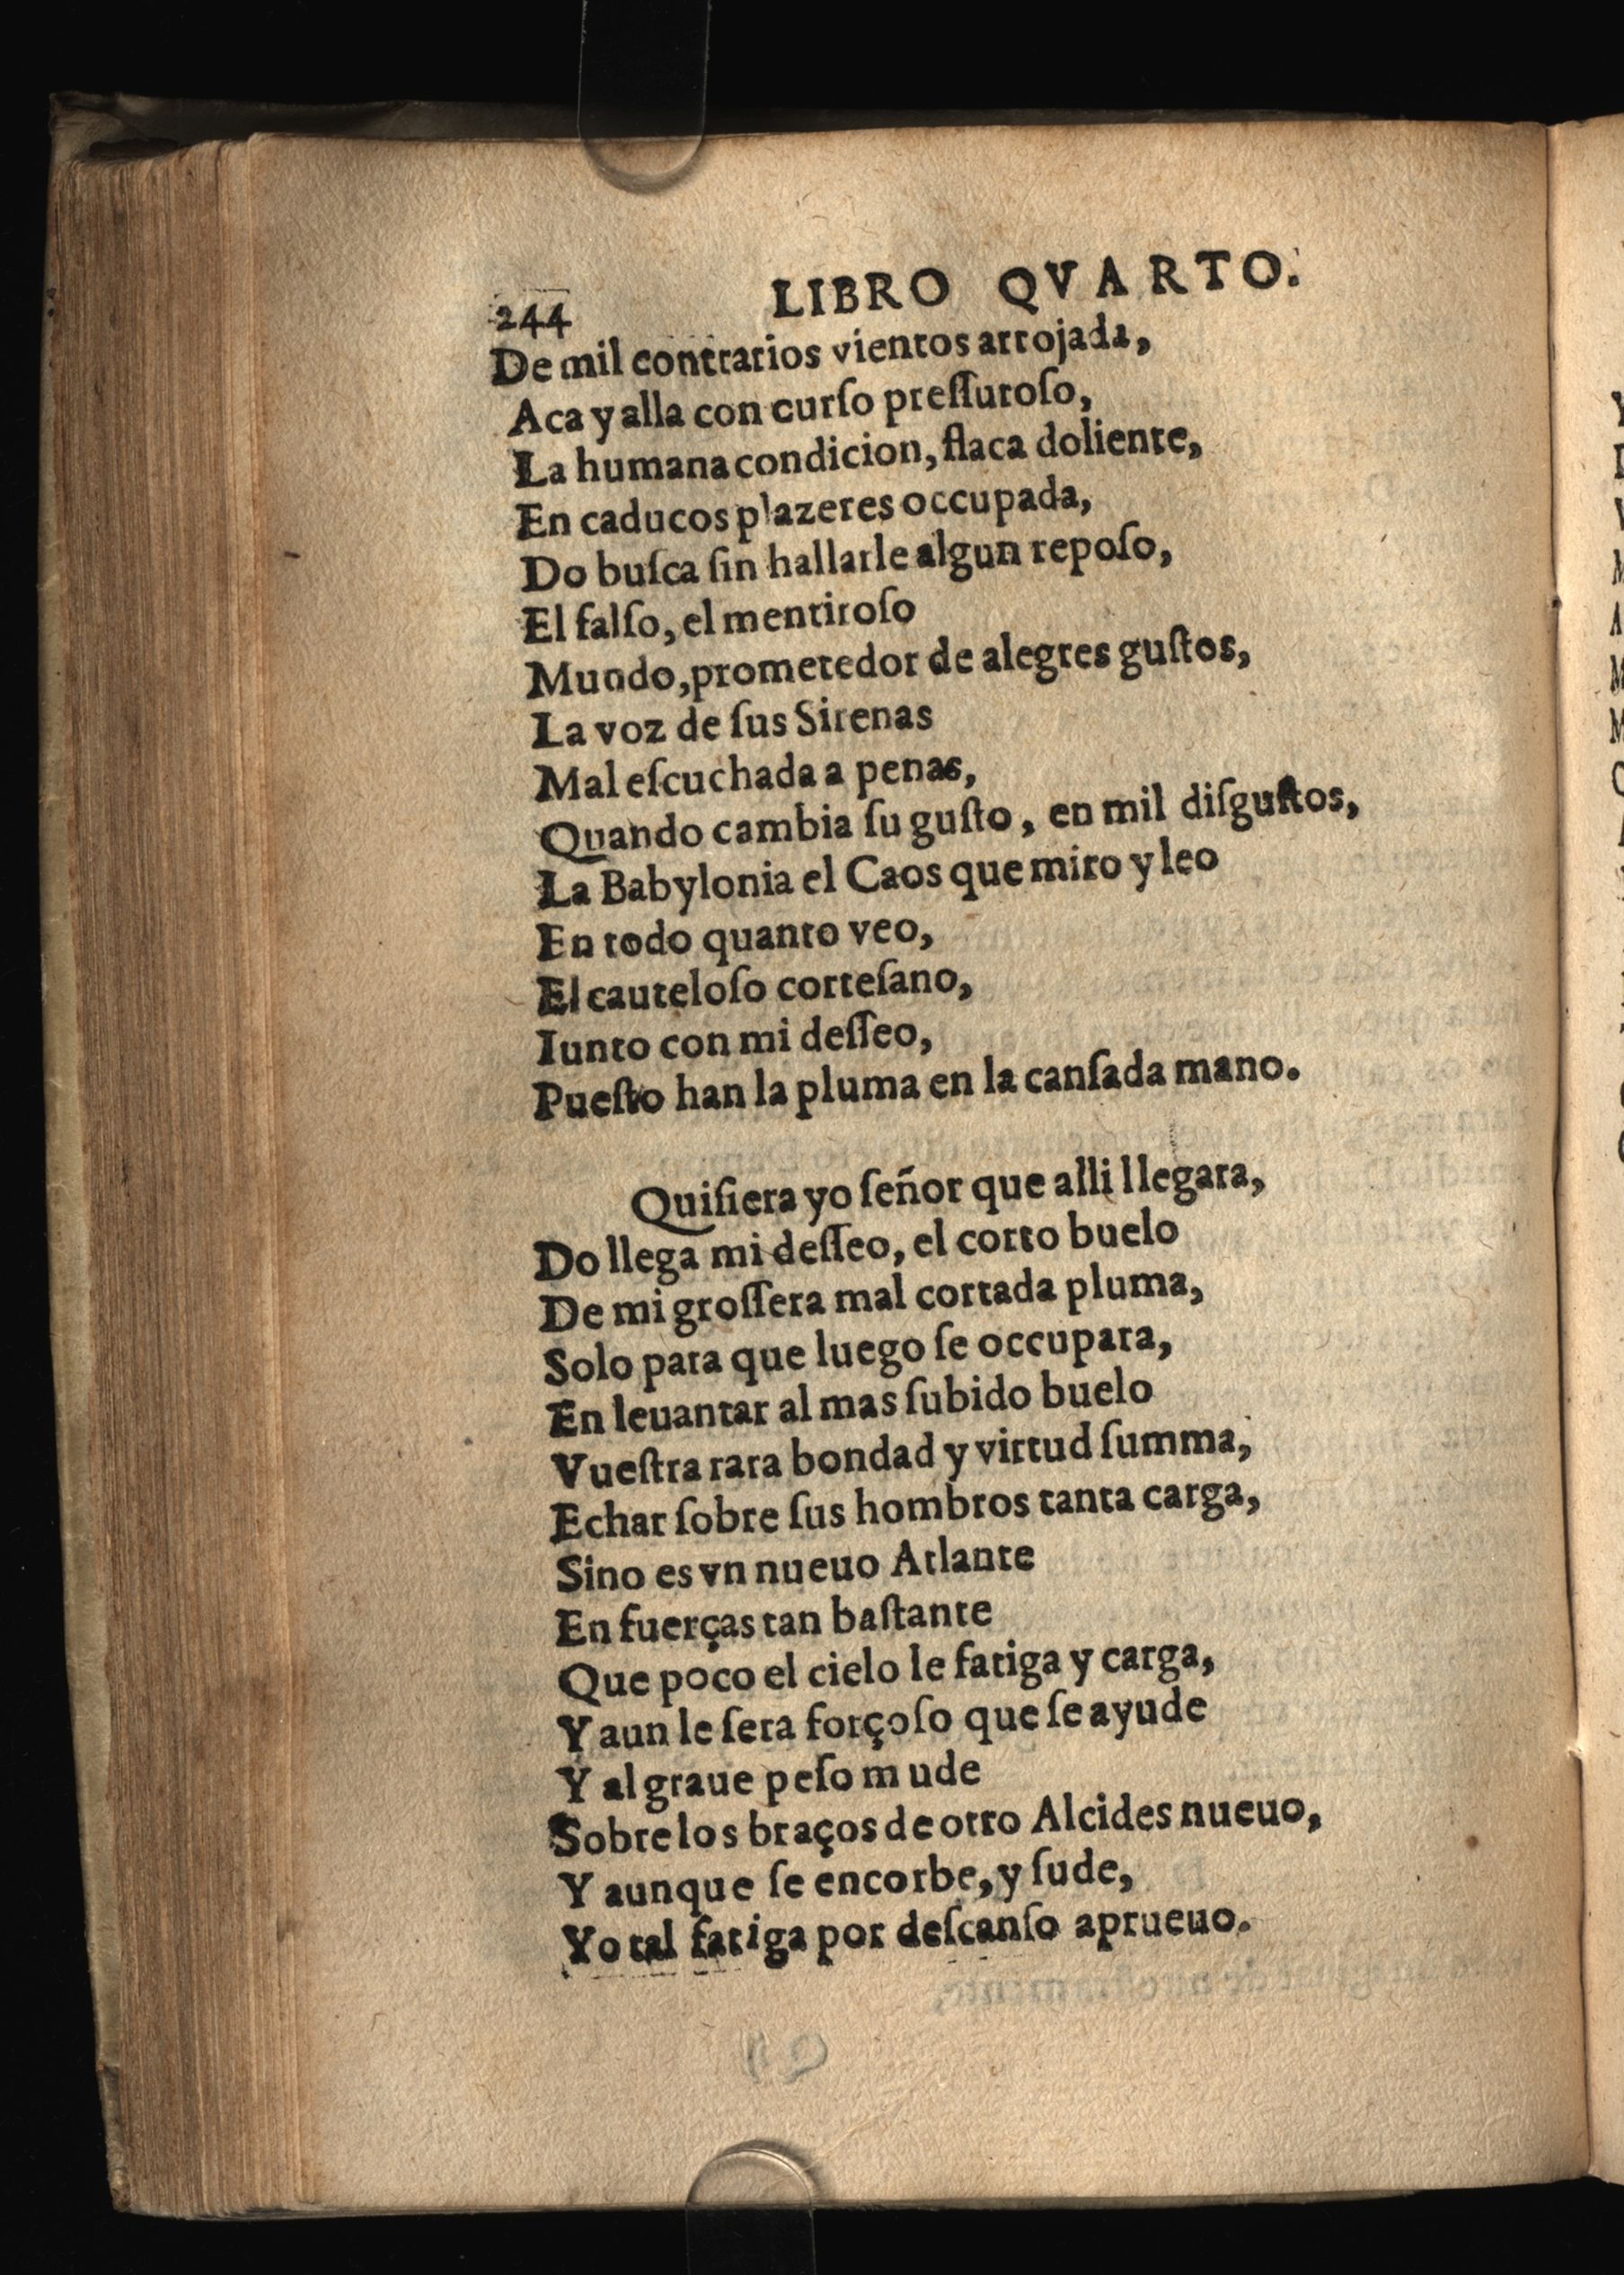 244 LIBRO QVARTO.
De mil contrarios vientos arrojada,
Aca y alla con curſo preſſuroſo,
La humana condicion, flaca doliente,
En caducos plazeres occupada,
Do buſca ſin hallarle algun repoſo,
El falſo, el mentiroſo
Mundo, prometedor de alegres guſtos,
La voz de ſus Sirenas
Mal eſcuchada a penas,
Quando cambia ſu guſto, en mil diſguſtos,
La Babylonia el Caos que miro y leo
En todo quanto veo,
El cauteloſo corteſano,
Iunto con mi deſſeo,
Pueſto han la pluma en la canſada mano.
Quiſiera yo ſeñor que alli llegara,
Do llega mi deſſeo, el corto buelo
De mi groſſera mal cortada pluma,
Solo para que luego ſe occupara,
En leuantar al mas ſubido buelo
Vueſtra rara bondad y virtud ſumma,
Echar ſobre ſus hombros tanta carga,
Sino es vn nueuo Atlante
En fuerças tan baſtante
Que poco el cielo le fatiga y carga,
Y aun le ſera forçoſo que ſe ayude
Y al graue peſo mude
Sobre los braços de otro Alcides nueuo,
Y aunque ſe encorbe, y ſude,
Yo tal fatiga por deſcanſo aprueuo.